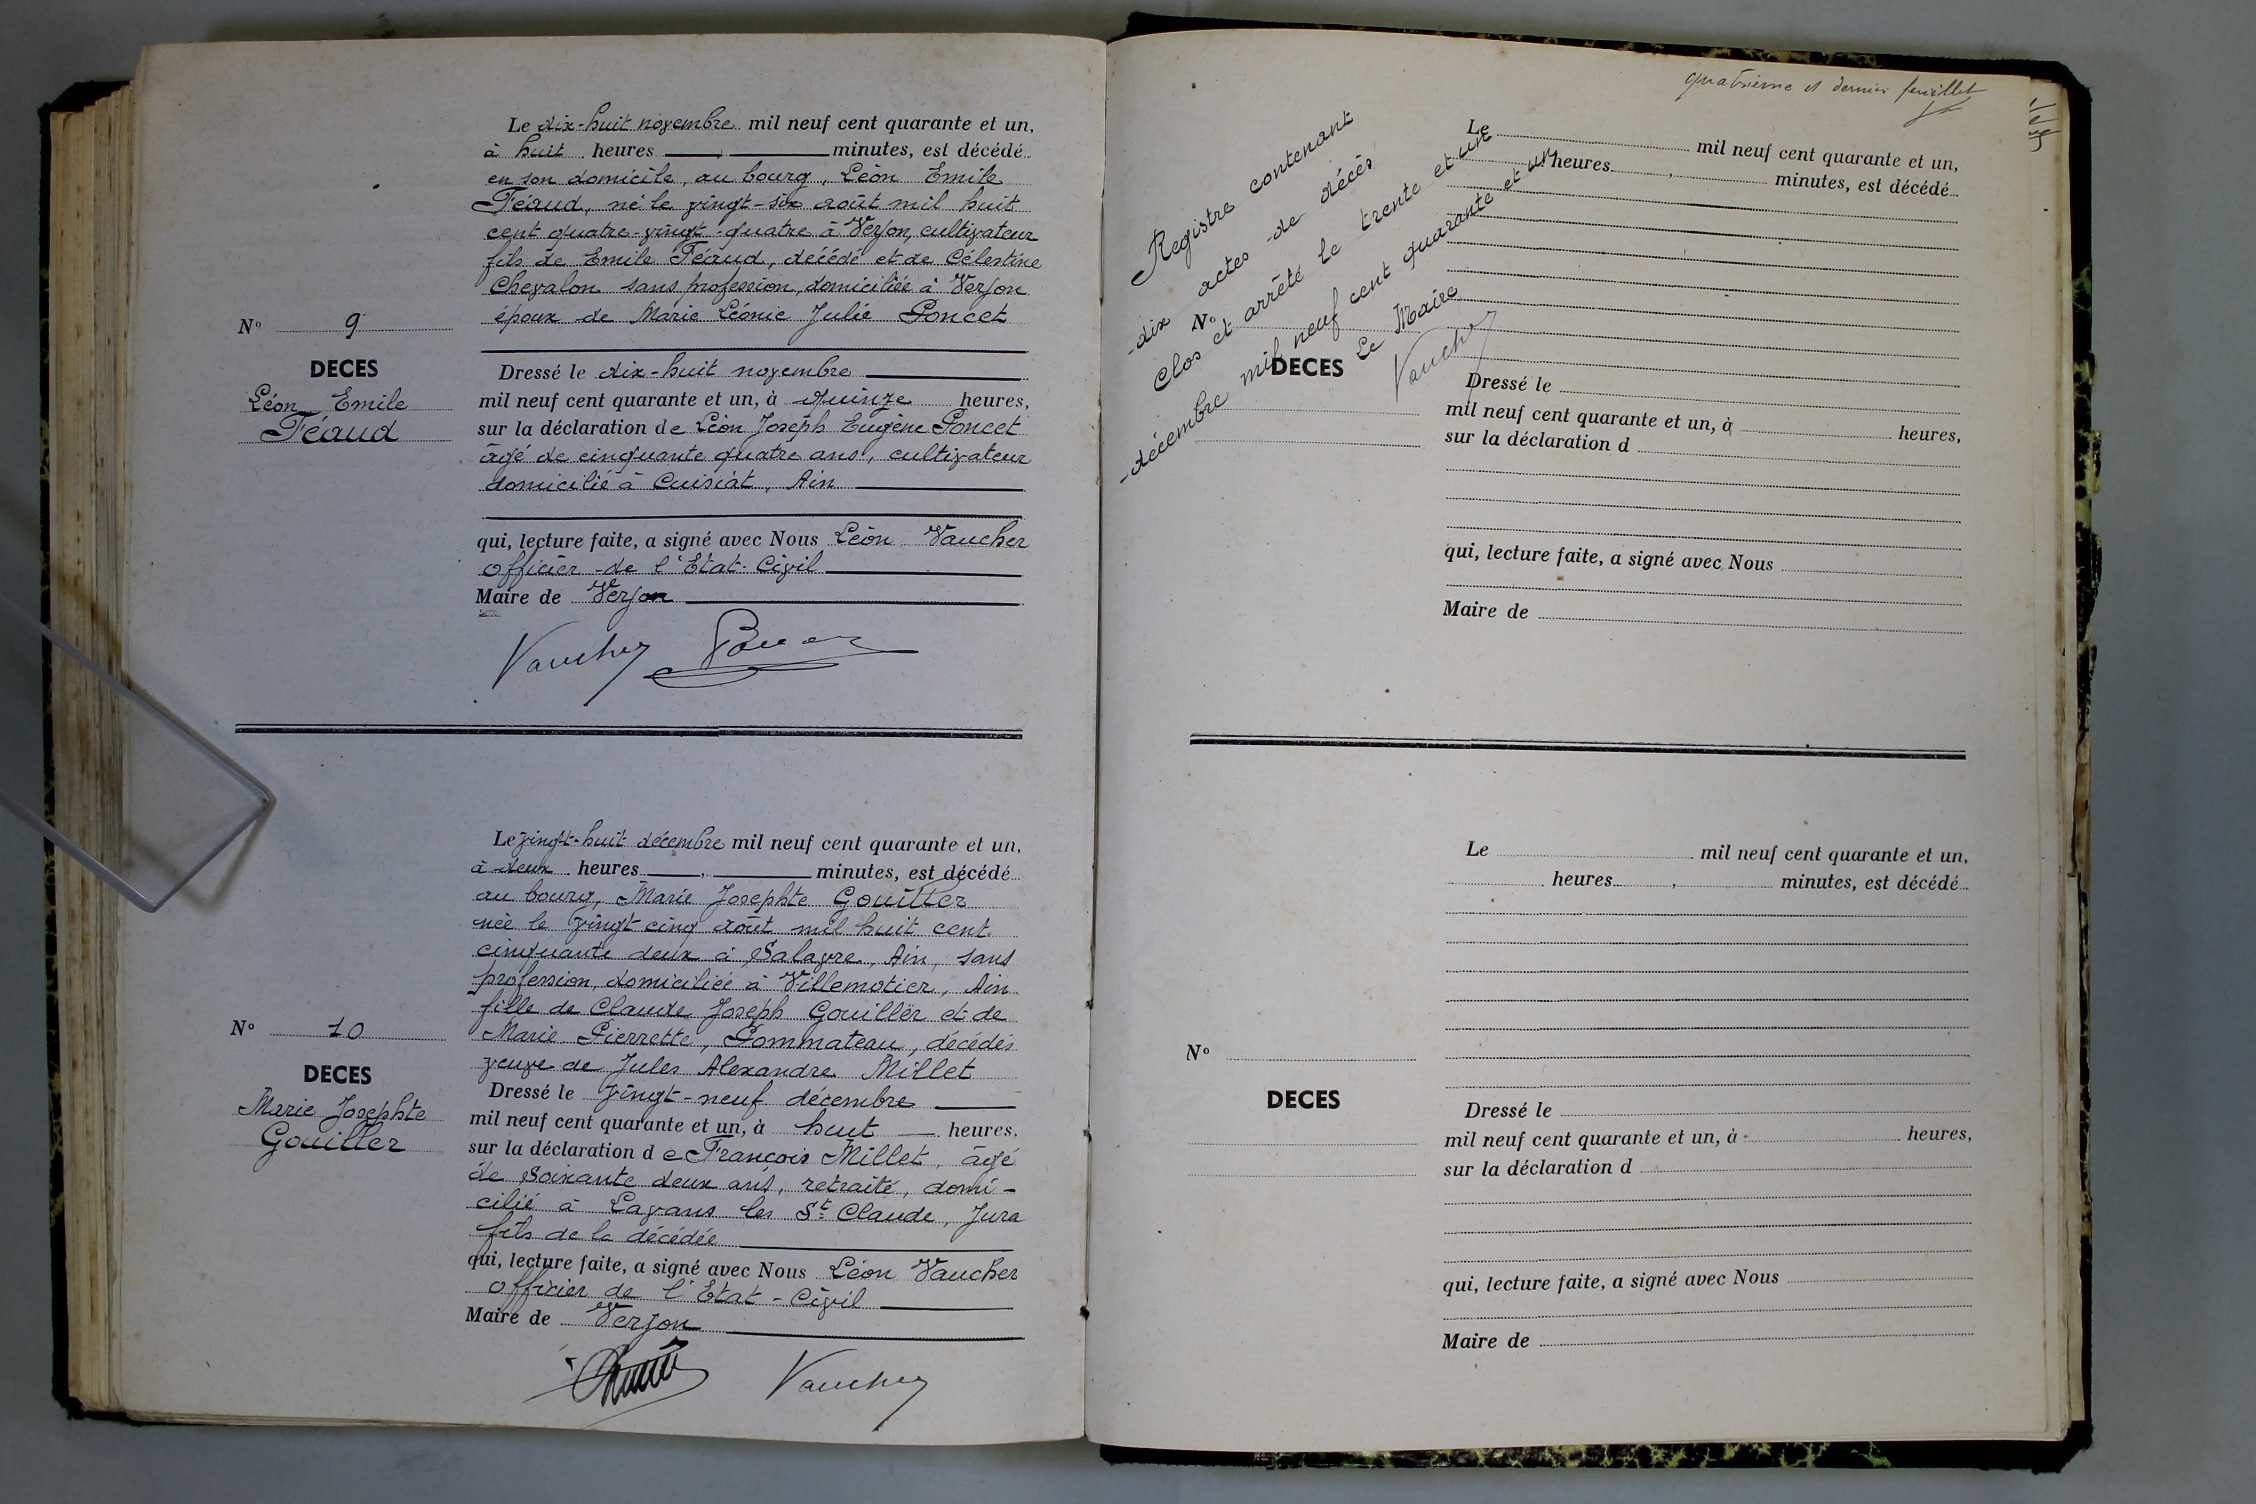 Le dix-huit novembre mil neuf cent quarante et un,
à huit heures minutes, est décédé
en son domicile, au bourg, Léon Emile
Féaud, né le vingt-six août mil huit
cent quatre-vingt-quatre à Verjon, cultivateur
fils de Emile Féaud, décédé et de Célestine
Chevalon sans profession, domiciliée à Verjon
époux de Marie Léonie Julie Poncet
N° 9
DECES
Léon Emile
Féaud
Dressé le dix-huit novembre
mil neuf cent quarante et un, à quinze heures,
sur la déclaration de Léon Joseph Eugène Poncet
âgé de cinquante quatre ans, cultivateur
domicilié à Cuisiat, Ain
qui, lecture faite, a signé avec Nous Léon Vaucher
officier de l'Etat-Civil
Maire de Verjon
Vaucher
Le vingt-huit décembre mil neuf cent quarante et un,
à deux heures , minutes, est décédé
au bourg, Marie Josephte Gouiller
née le vingt-cinq août mil huit cent
cinquante deux à Salavre, Ain, sans
profession, domiciliée à Villemotier, Ain
fille de Claude Joseph Gouiller et de
Marie Pierrette, Pommateau, décédés
veuve de Jules Alexandre Millet
N° 10
DECES
Marie Josephte
Gouiller
Dressé le vingt-neuf décembre
mil neuf cent quarante et un, à huit heures,
sur la déclaration de François Millet, âgé
de soixante deux ans, retraité, domi-
cilié à Lavans les St Claude, Jura
fils de la décédée
qui, lecture faite, a signé avec Nous Léon Vaucher
officier de l'Etat-Civil
Maire de Verjon
Vaucher
quatrième et dernier feuillet
Registre contenant
dix actes de décès
Clos et arrêté le trente et un
décembre mil neuf cent quarante et un
Le Maire
Vaucher
Le mil neuf cent quarante et un,
heures , minutes, est décédé
N°
DECES
Dressé le
mil neuf cent quarante et un, à heures,
sur la déclaration d
qui, lecture faite, a signé avec Nous
Maire de
Le mil neuf cent quarante et un,
heures , minutes, est décédé
N°
DECES
Dressé le
mil neuf cent quarante et un, à heures,
sur la déclaration d
qui, lecture faite, a signé avec Nous
Maire de